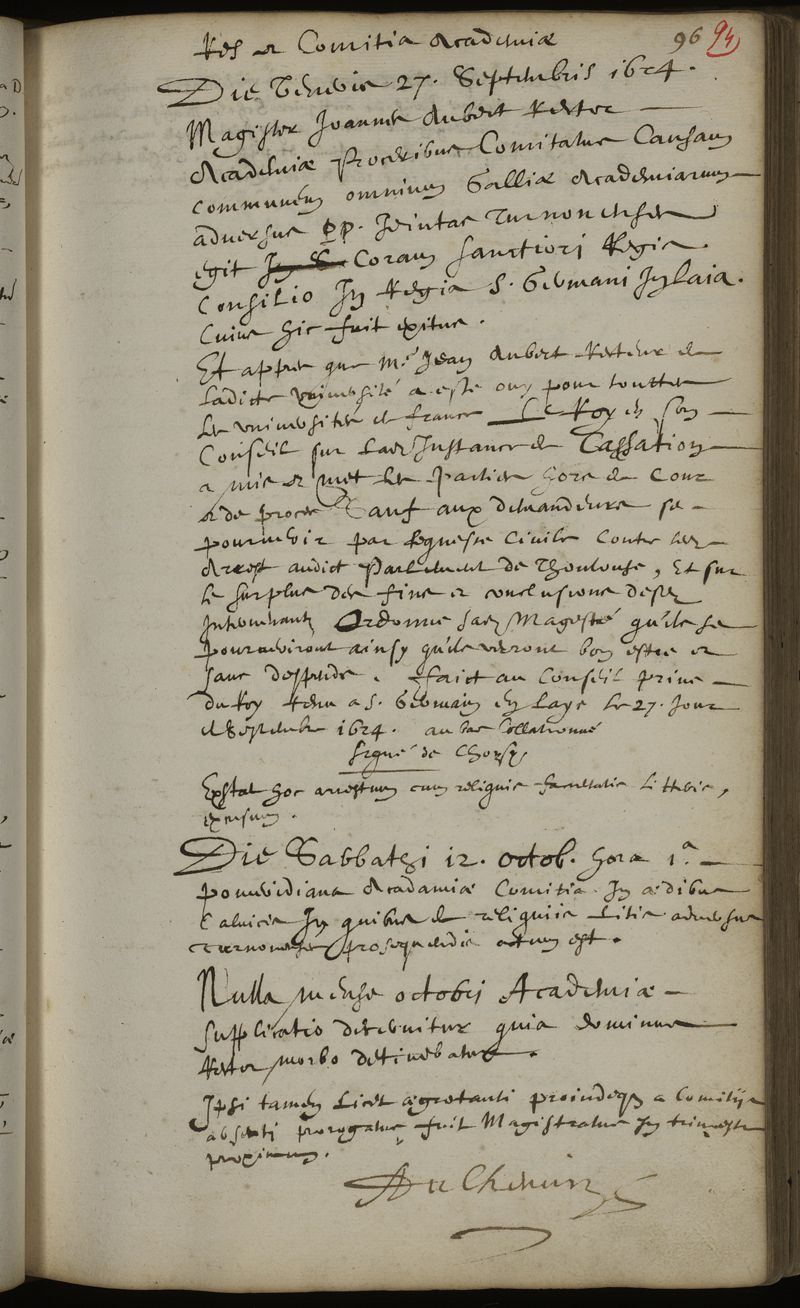 Res et Comitia Academiæ 96 94
Die Veneris 27. Septembris 1624.
Magister Joannes Aubert Rector
Academiæ Proceribus Comitatus Causam
communem omnium Galliæ Academiarum
adversus PP. Jesuitas Turnonenses
egit Coram sanctiori Regis
Consilio In Regia S. Germani In laia.
Cuius hic fuit exitus.
Et appres que Me Jean Aubert Recteur de
ladicte université a esté ouy pour touttes
les universités de france Le Roy en son
Conseil sur lad Instance de Cassation
a mis et met les Parties hors de Cour
et de proces Sauf aux demandeurs se
pourvoir par Requeste Civile Contre led
Arrest audict Parlement de Thoulouse, Et sur
le surplus des fins et conclusions desd
Intervenants Ordonne sad Magesté qu'ils se
pourvoiront ainsy qu'ils verront bon estre et
sans despends. faict au Conseil privé
du Roy tenu a S. Germain en Laye le 27. Jour
de Septembre 1624. au bas Collationné
signé de Choisy
Exstat hoc arrestum cum reliquis facultatis litteris,
excusum.
Die Sabbathi 12. octob. hora 1.a
pomeridiana Academiæ Comitia In ædibus
Calvicis In quibus de reliquiis litis adversus
Turnonenses prosequendis actum est.
Nulla mense octobri Academiæ
supplicatio decernitur quia dominus
Rector morbo detinebatur.
Ipsi tamen licet ægrotanti proindeque a Comitiis
absenti prorogatus fuit Magistratus In trimestre
proximum.
Du Chevin